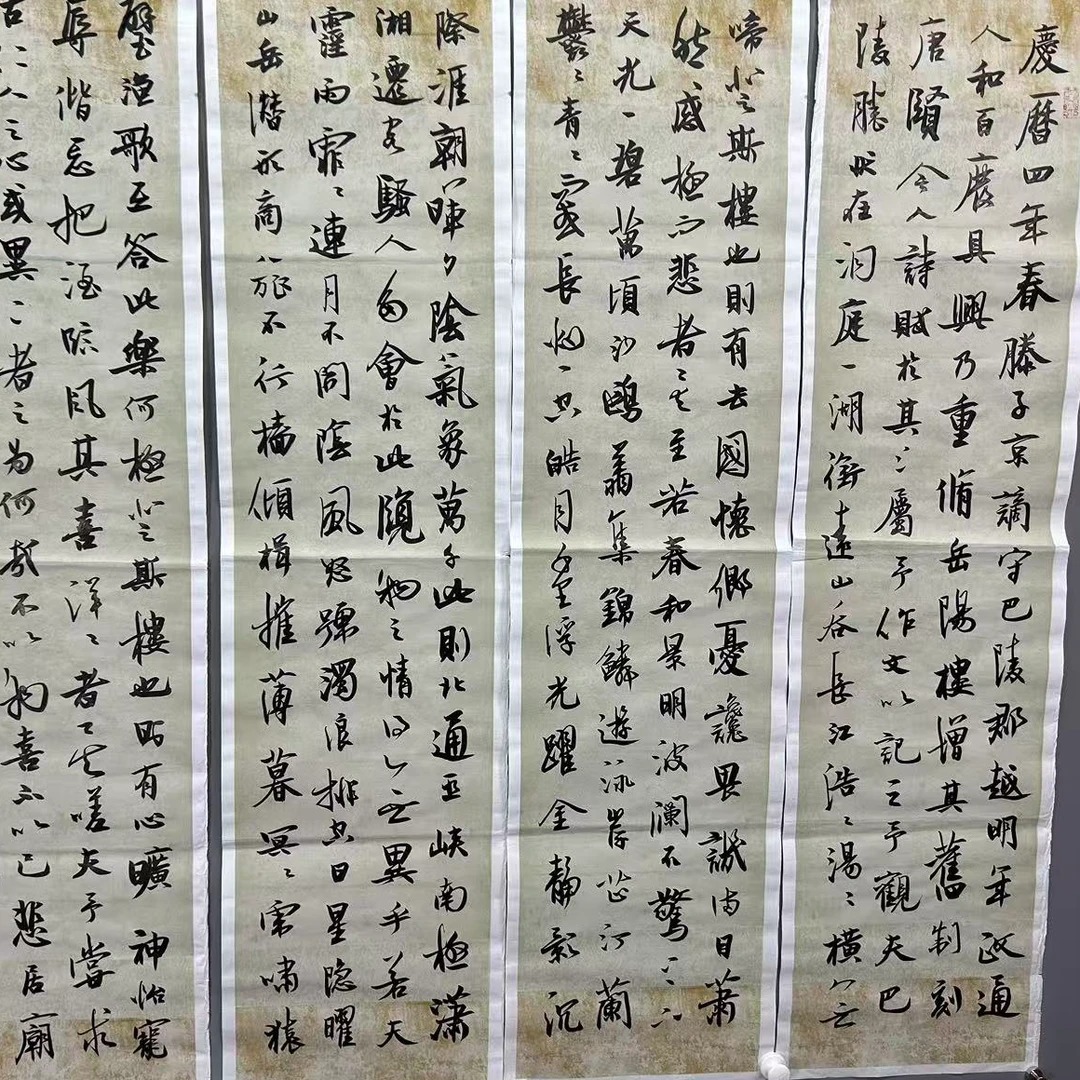 慶曆四年春滕子京謫守巴陵郡越明年政通
人和百廢具興乃重脩岳陽樓增其舊制刻
唐賢今人詩賦於其上屬予作文以記之予觀夫巴
陵勝狀在洞庭一湖銜遠山吞長江浩々湯々橫無
啼登斯樓也則有去國懷鄉憂讒畏譏滿目蕭
然感極而悲者矣至若春和景明波瀾不驚上下
天光一碧萬頃沙鷗翔集錦鱗游泳岸芷汀蘭
鬱々青々而或長煙一空皓月千里浮光躍金靜影沉
際涯朝暉夕陰氣象萬千此則北通巫峽南極瀟
湘遷客騷人多會於此覽物之情得無異乎若夫
霪雨霏々連月不開陰風怒號濁浪排空日星隱曜
山岳潛形商旅不行檣傾楫摧薄暮冥々虎嘯猿
璧漁歌互答此樂何極登斯樓也則有心曠神怡寵
辱偕忘把酒臨風其喜洋々者矣嗟夫予嘗求
古仁人之心或異二者之為何哉不以物喜不以己悲居廟